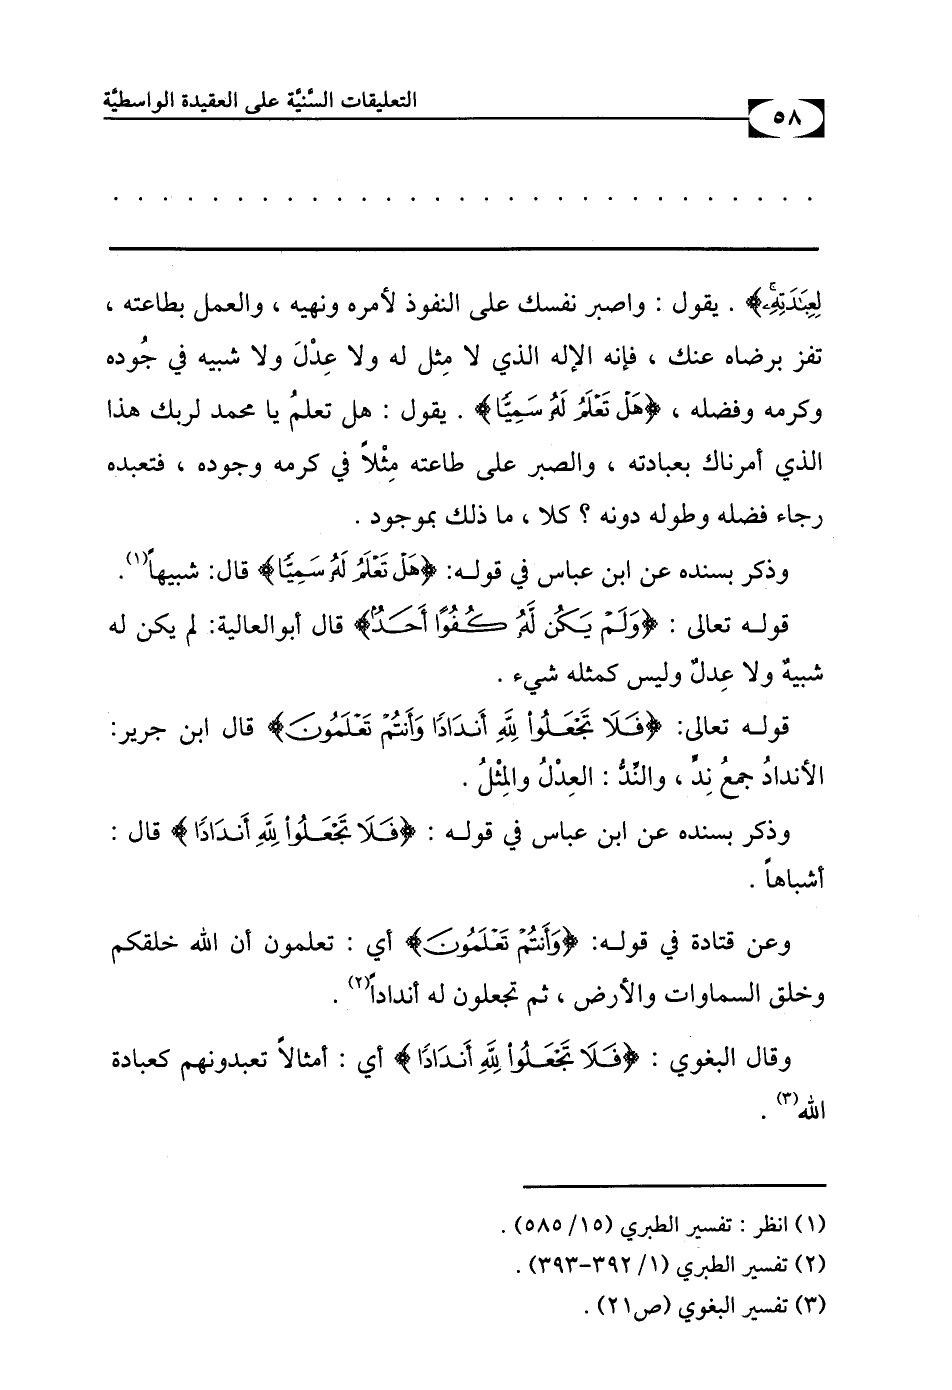 التعليقات السَّنيَّة على العقيدة الواسطيَّة
٥٨
. . . . . . . . . . . . . . . . . . . . . . . . . . . . .
لِعِبَٰدَتِهِۦۚ﴾ . يقول : واصبر نفسك على النفوذ لأمره ونهيه ، والعمل بطاعته ،
تفز برضاه عنك ، فإنه الإله الذي لا مِثل له ولا عِدْلَ ولا شبيه في جُوده
وكرمه وفضله ، ﴿هَلْ تَعْلَمُ لَهُۥ سَمِيًّا﴾ . يقول : هل تعلمُ يا محمد لربك هذا
الذي أمرناك بعبادته ، والصبر على طاعته مِثْلاً في كرمه وجوده ، فتعبده
رجاء فضله وطوله دونه ؟ كلا ، ما ذلك بموجود .
وذكر بسنده عن ابن عباس في قوله: ﴿هَلْ تَعْلَمُ لَهُۥ سَمِيًّا﴾ قال: شبيهاً(١).
قوله تعالى : ﴿وَلَمْ يَكُن لَّهُۥ كُفُوًا أَحَدٌۢ﴾ قال أبوالعالية: لم يكن له
شبيهٌ ولا عِدلٌ وليس كمثله شيء .
قوله تعالى: ﴿فَلَا تَجْعَلُوا۟ لِلَّهِ أَندَادًا وَأَنتُمْ تَعْلَمُونَ﴾ قال ابن جرير:
الأندادُ جمعُ نِدٍّ ، والنِّدُّ : العِدْلُ والمِثْلُ .
وذكر بسنده عن ابن عباس في قوله : ﴿فَلَا تَجْعَلُوا۟ لِلَّهِ أَندَادًا﴾ قال :
أشباهاً .
وعن قتادة في قوله: ﴿وَأَنتُمْ تَعْلَمُونَ﴾ أي : تعلمون أن الله خلقكم
وخلق السماوات والأرض ، ثم تجعلون له أنداداً(٢) .
وقال البغوي : ﴿فَلَا تَجْعَلُوا۟ لِلَّهِ أَندَادًا﴾ أي : أمثالاً تعبدونهم كعبادة
الله(٣) .
(١) انظر : تفسير الطبري (١٥/ ٥٨٥) .
(٢) تفسير الطبري (١/ ٣٩٢-٣٩٣) .
(٣) تفسير البغوي (ص٢١) .